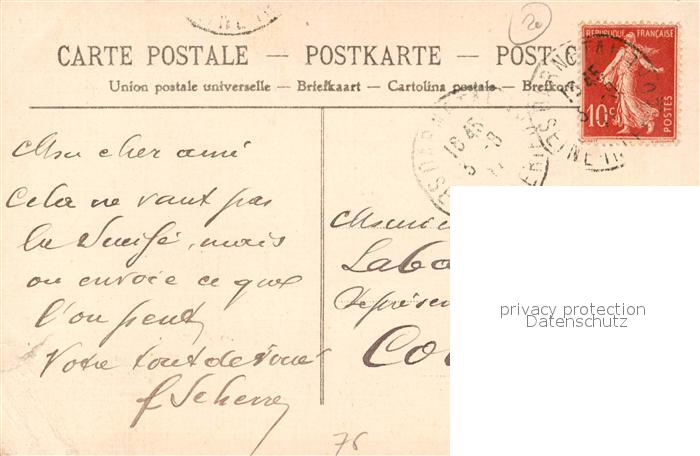 CARTE POSTALE — POSTKARTE — POST
Union postale universelle — Briefkaart — Cartolina postale — Brefkort
REPUBLIQUE FRANÇAISE
10c
POSTES
SEINE-INF
18 45
Mon cher ami
Cela ne vaut pas
la mais
on envoie ce que
l'on peut
Votre tout dévoué
f Scherre
Monsieur
Laba
Représen
Co
privacy protection
Datenschutz
76
20